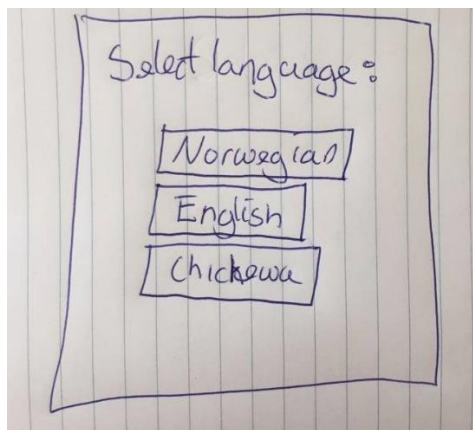 Select language:
Norwegian
English
Chickewa